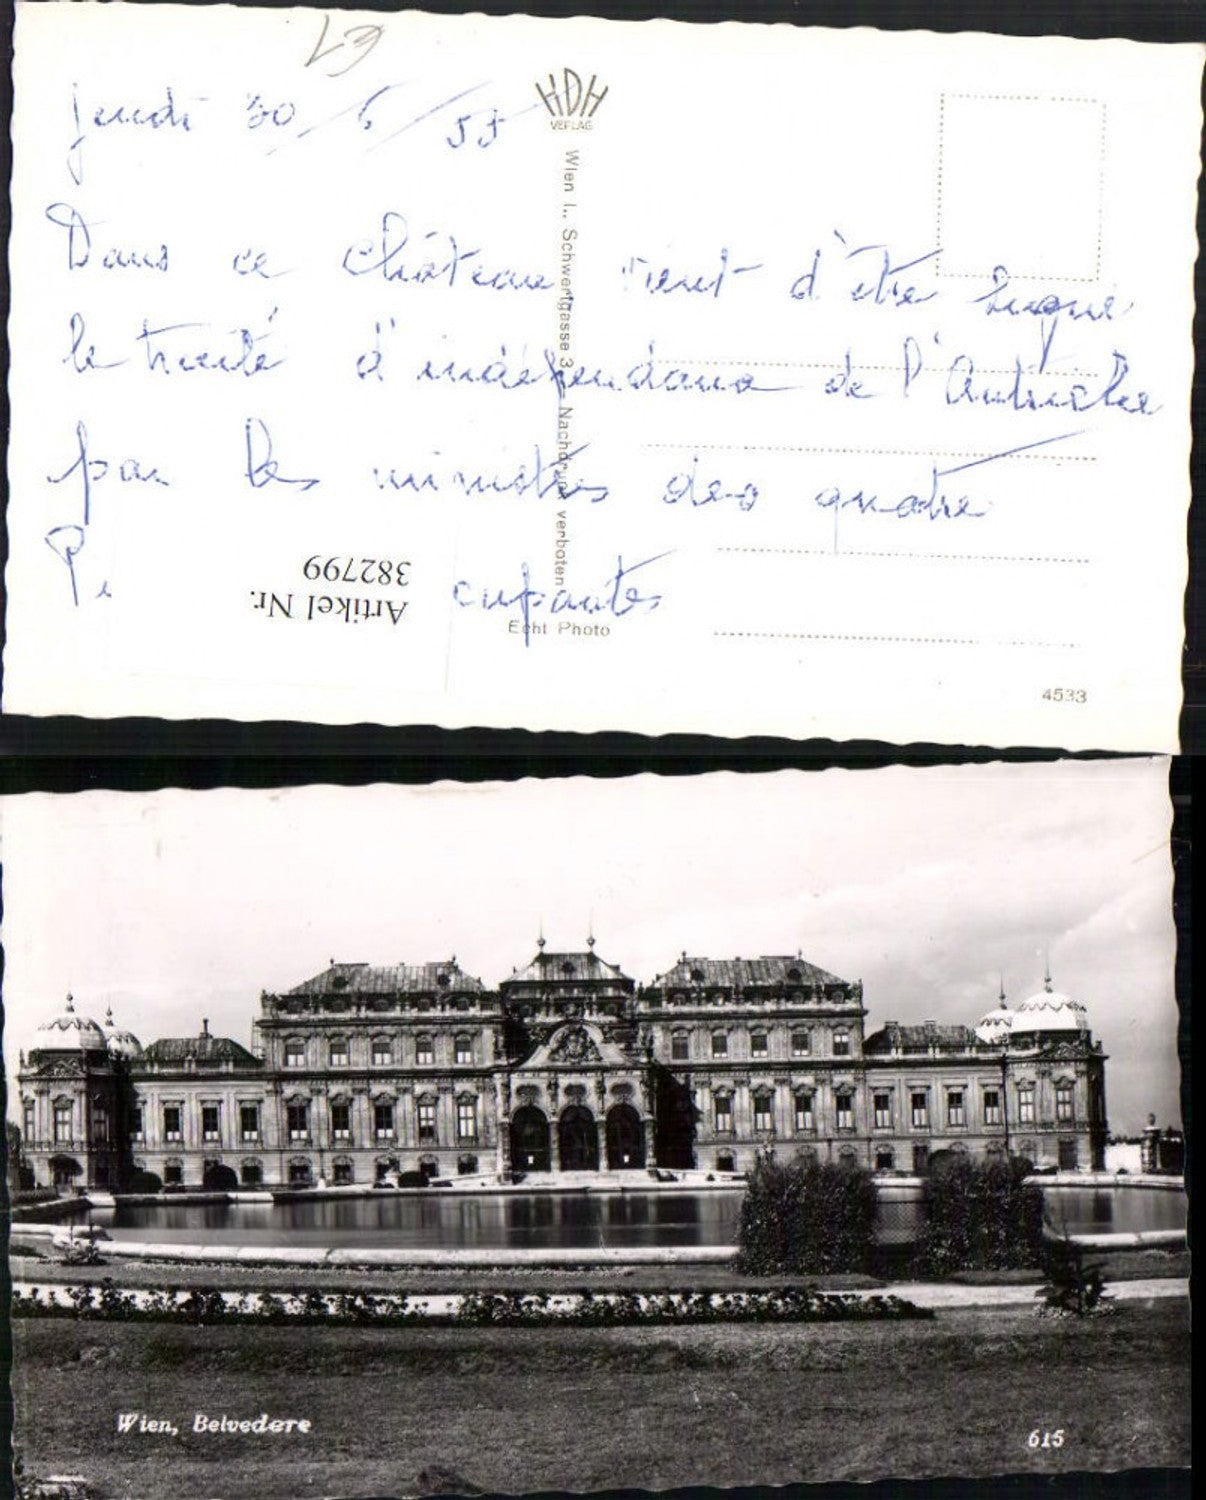 L3
Jeudi 30/6/55
Dans ce château vient d'être signé
le traité d'indépendance de l'Autriche
par les ministres des quatre
cupantes
HDH
VERLAG
Wien I., Schwertgasse 3 - Nachdruck verboten
Echt Photo
4533
Artikel Nr.
382799
Wien, Belvedere
615